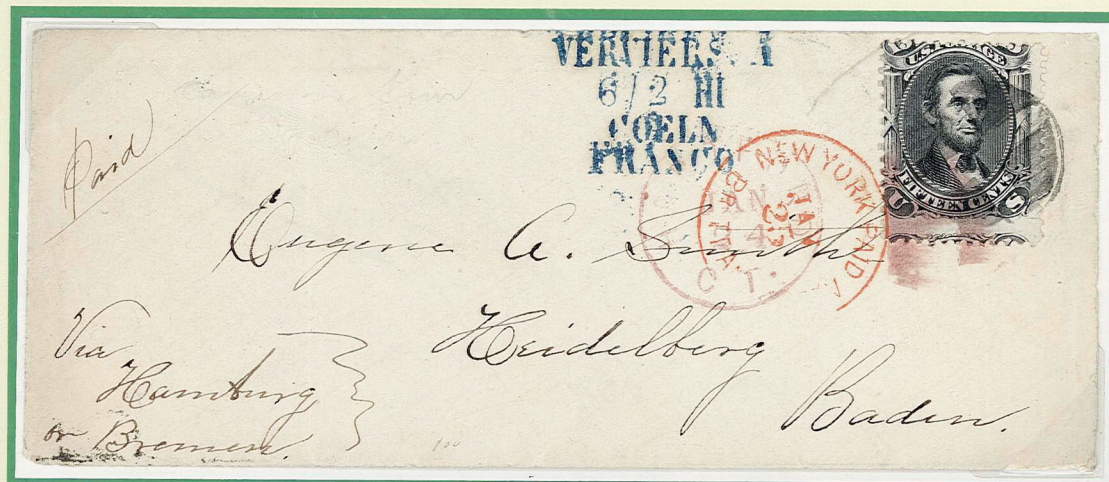 VERVIERS. A
6/2 III
COELN
FRANCO
U.S. POSTAGE
FIFTEEN CENTS
U S
Paid
NEW YORK PAID
BR. TRA.
JAN
25
JAN
4
CT.
Eugene A. Smith
Heidelberg
Baden.
Via
Hamburg
or Bremen.
100